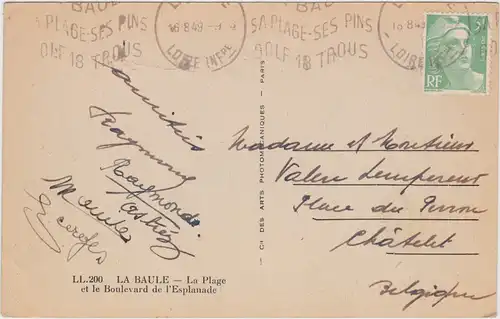 BAUL
SA PLAGE-SES PINS
GOLF 18 TROUS
16-8 49
LOIRE INFRE
SA PLAGE-SES PINS
GOLF 18 TROUS
16-8 49
LOIRE
5F
RF
amitiés
Raymonde
Madame et Monsieur
Valère Lempereur
Place du Perron
Châtelet
Belgique
Cie DES ARTS PHOTOMÉCANIQUES - PARIS
LL.200 LA BAULE — La Plage
et le Boulevard de l'Esplanade